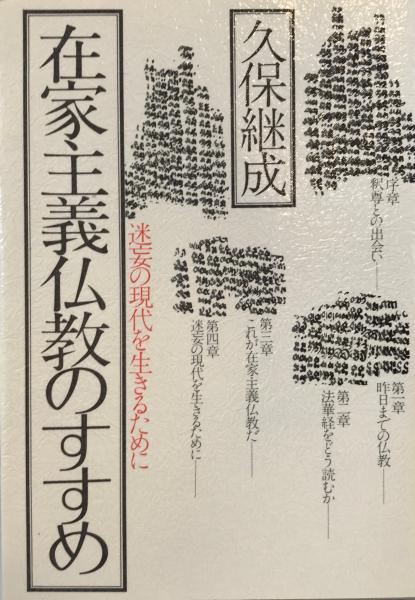 久保継成
在家主義仏教のすすめ
迷妄の現代を生きるために
序章
釈尊との出会い――
第一章
昨日までの仏教――
第二章
法華経をどう読むか――
第三章
これが在家主義仏教だ――
第四章
迷妄の現代を生きるために――